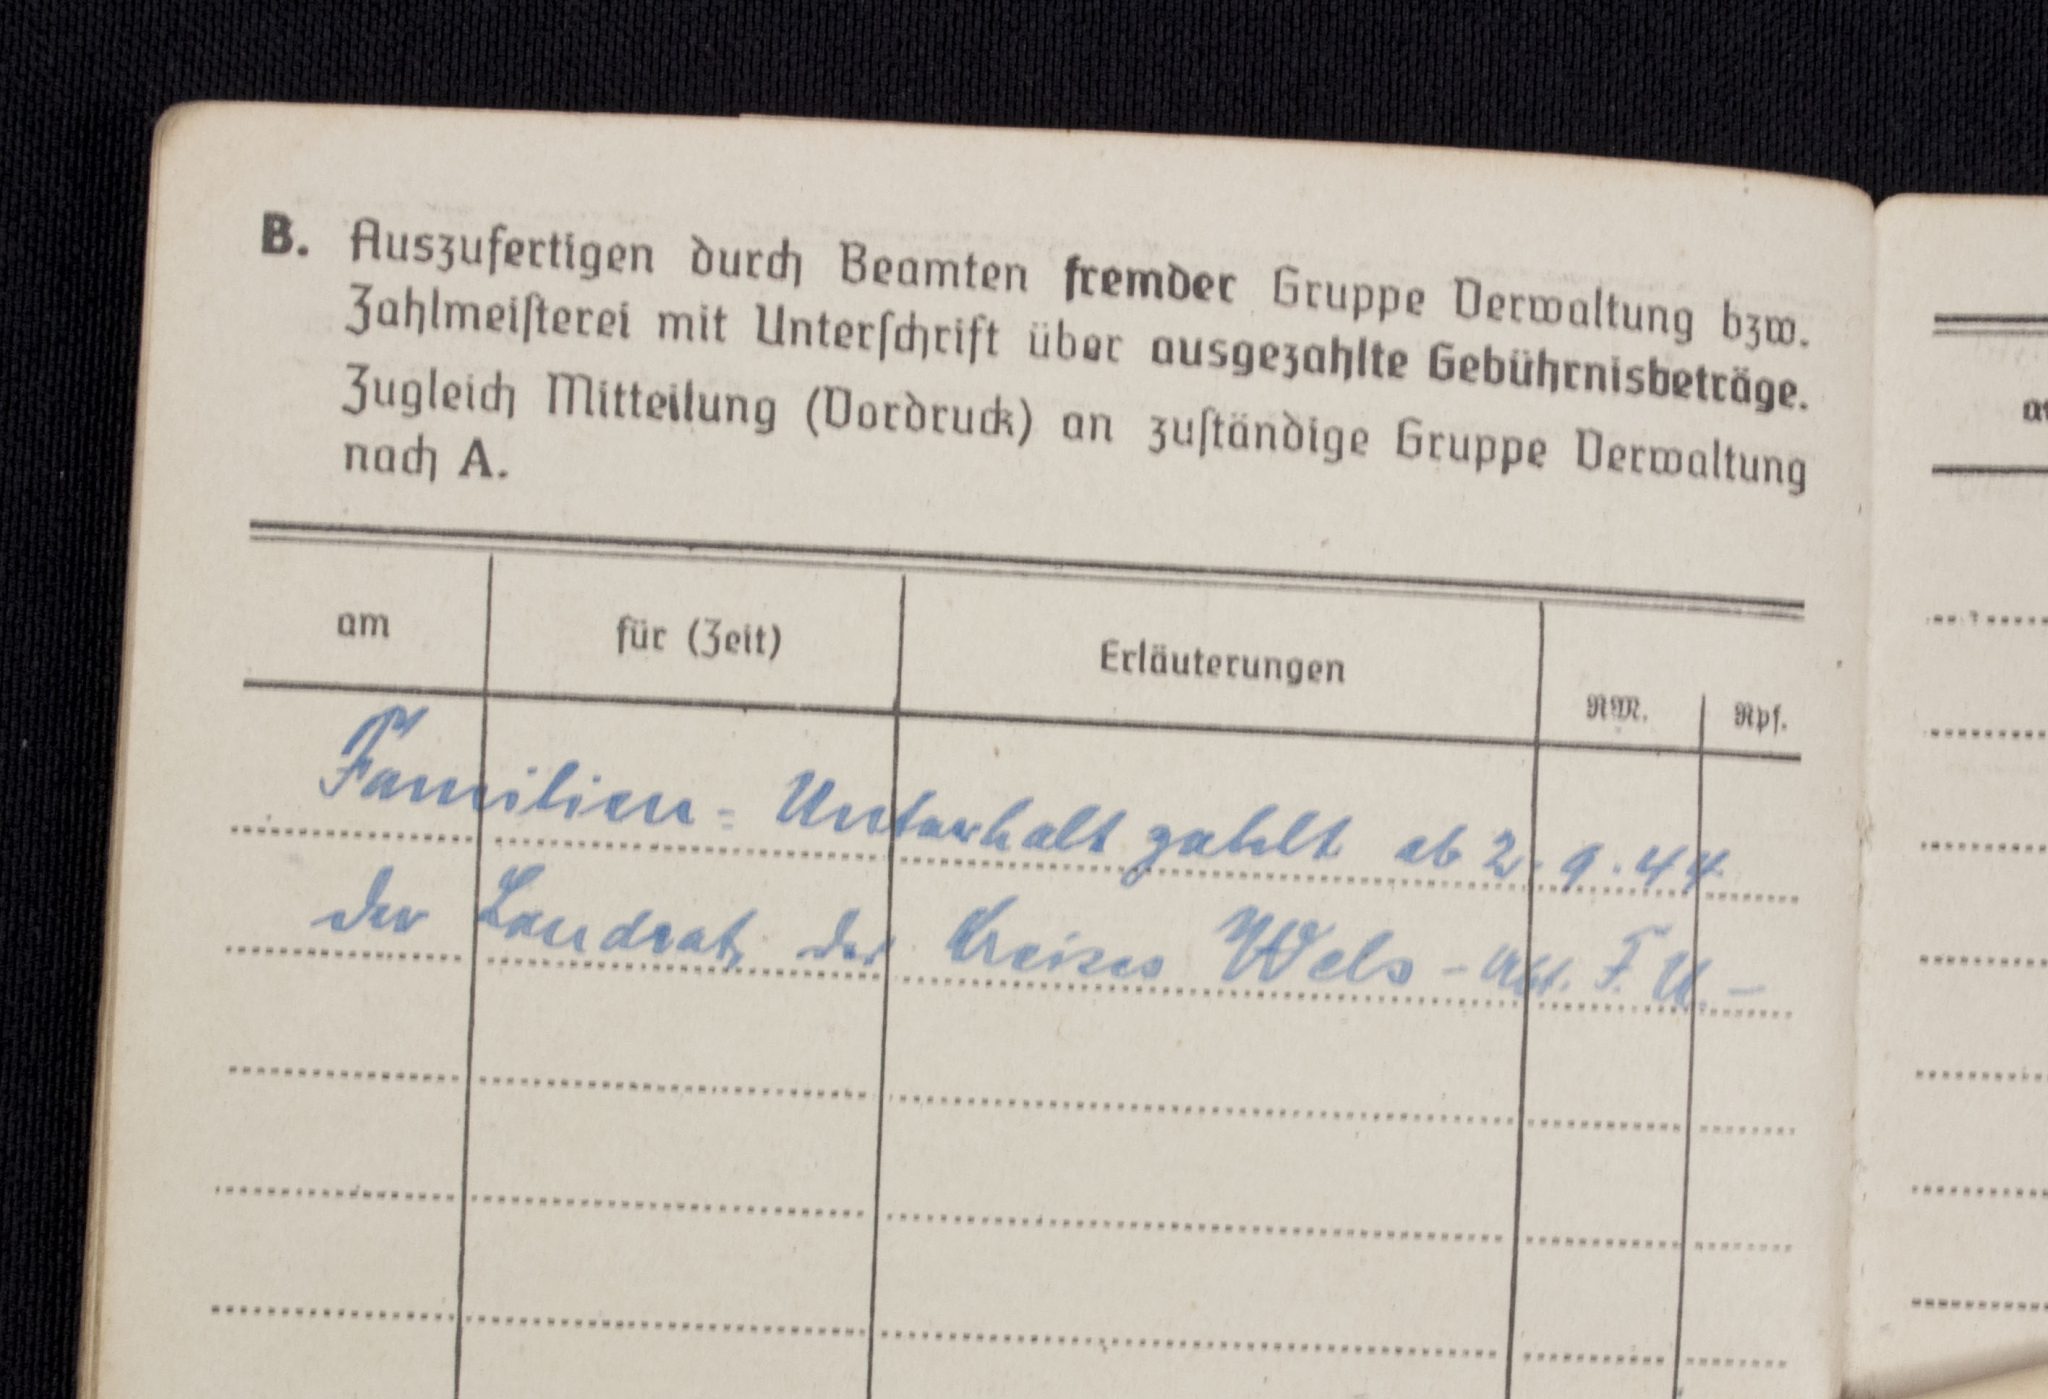 B. Auszufertigen durch Beamten fremder Gruppe Verwaltung bzw.
Zahlmeisterei mit Unterschrift über ausgezahlte Gebührnisbeträge.
Zugleich Mitteilung (Vordruck) an zuständige Gruppe Verwaltung
nach A.
am für (Zeit) Erläuterungen RM. Rpf.
Familien-Unterhalt zahlt ab 2.9.44
der Landrat des Kreises Wels - Abt. F.U. -